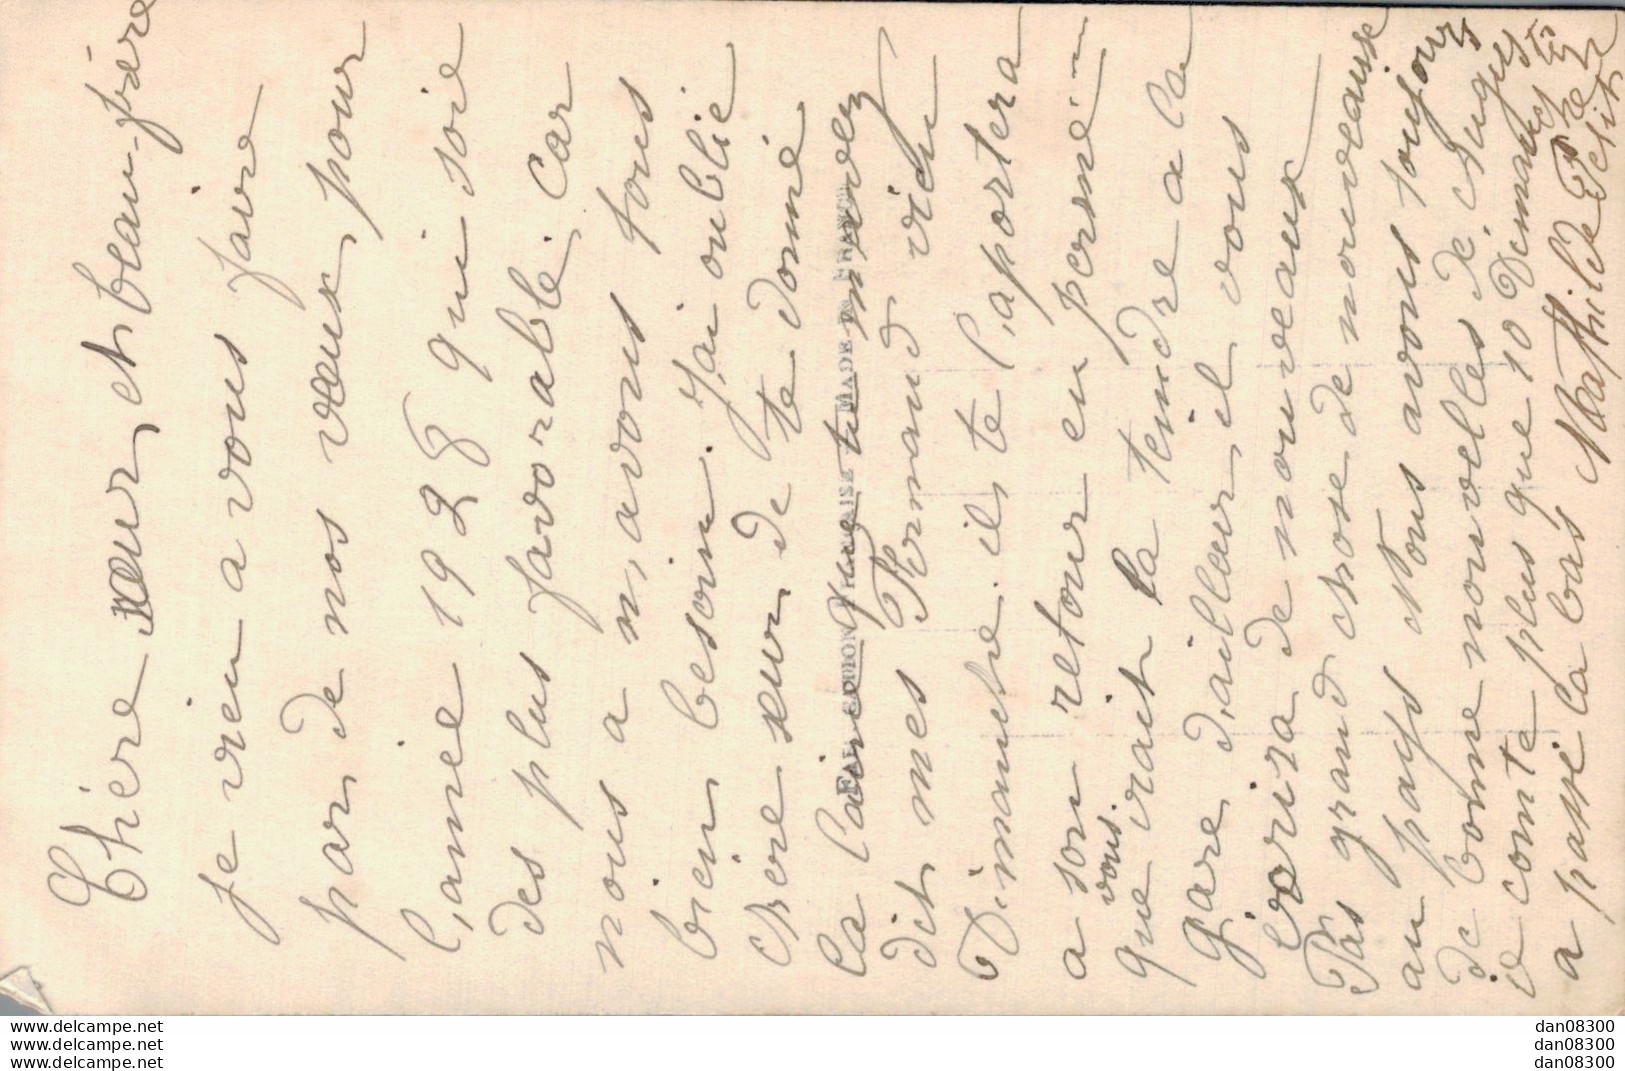 Chère sœur, et beau-frère
je vien a vous faire
par de nos vœux, pour
l,année 1928 qui soie
des plus favorable, car
nous a n,avons tous
bien besoin. J,ai oublié
chere sœur de te donné
la laine que tu m'avez
dit mes Fernand vien
Dimanche. il te l,aportera
a son retour en permé-
vous.
que vrait la tendre a la
gare d,ailleur, il vous
iorira de nouveaux
Pas grand chose de nouveausse
au pays Nous avons toujours
de bonne nouvelles de
e comte plus que 10 Dimanches
a passé la bas Mathilde Petit
FAB. CATION FRANÇAISE MADE IN FRANCE
www.delcampe.net
www.delcampe.net
www.delcampe.net
dan08300
dan08300
dan08300